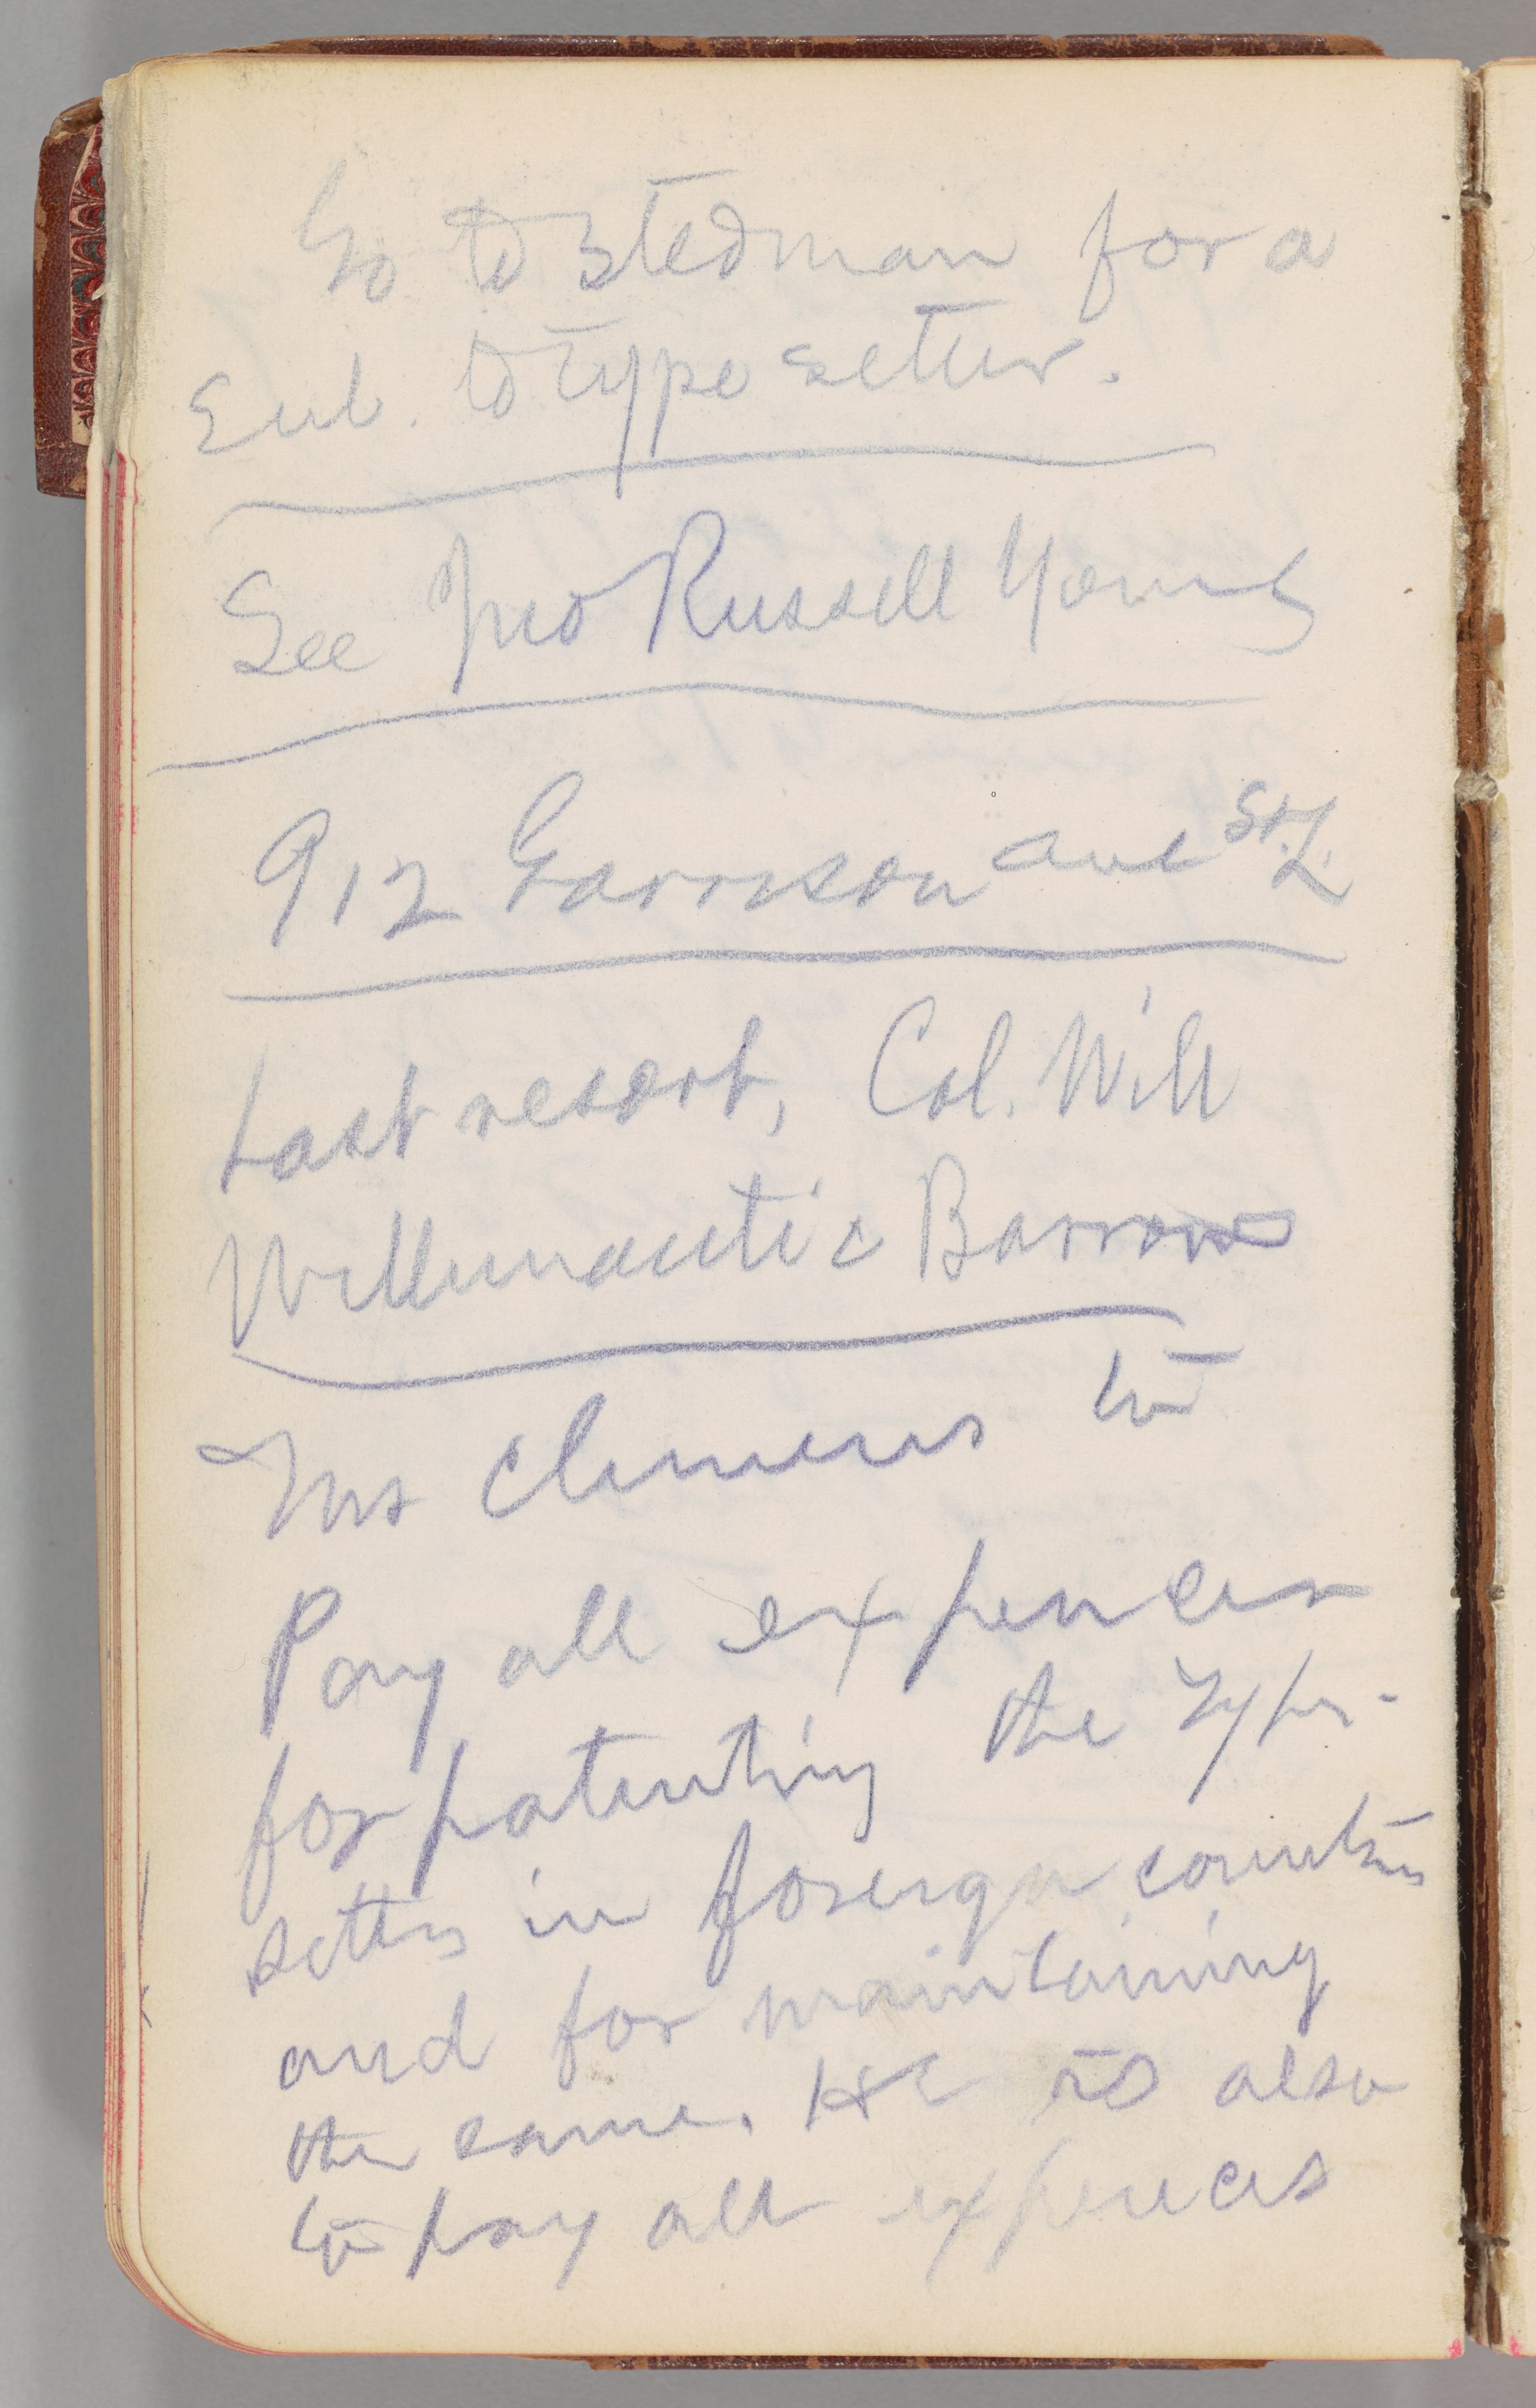 Go to Stedman for a
Sub. to type setter.
See Jno Russell Young
912 Garrison ave St. L.
Last resort, Col. Will
Willimantic Barrows
Mr Clemens to
Pay all expences
for patenting the Type-
setter in foreign countries
and for maintaining
the same. He is also
to pay all expences